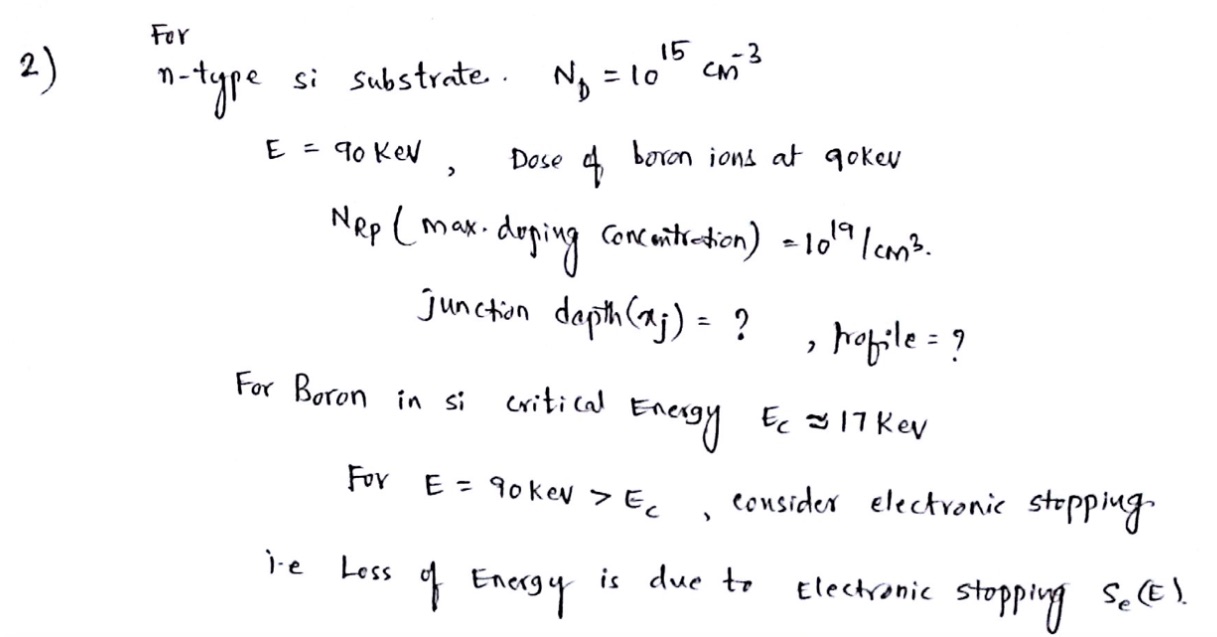 For
2) n-type si substrate. N_D = 10^15 cm^-3
E = 90 Kev, Dose of boron ions at 90kev
N_Rp (max. doping concentration) = 10^19/cm^3.
junction depth(x_j) = ?, profile = ?
For Boron in si critical Energy E_c ≈ 17 Kev
For E = 90kev > E_c, consider electronic stopping
i.e Loss of Energy is due to Electronic stopping S_e(E).